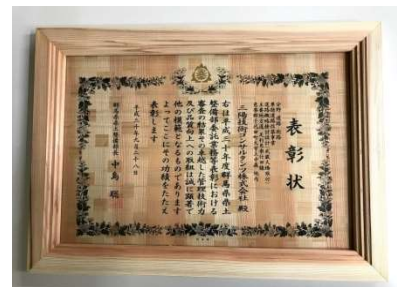 表彰状
三陽技術コンサルタンツ株式会社 殿
右は平成三十年度群馬県県土
整備部委託業務等表彰における
審査の結果その卓越した管理技術力
及び品質向上への取組は誠に顕著で
他の模範となるものであります
よってここにその功績をたたえ
表彰します
平成三十年九月二十八日
群馬県県土整備部長 中島 聡